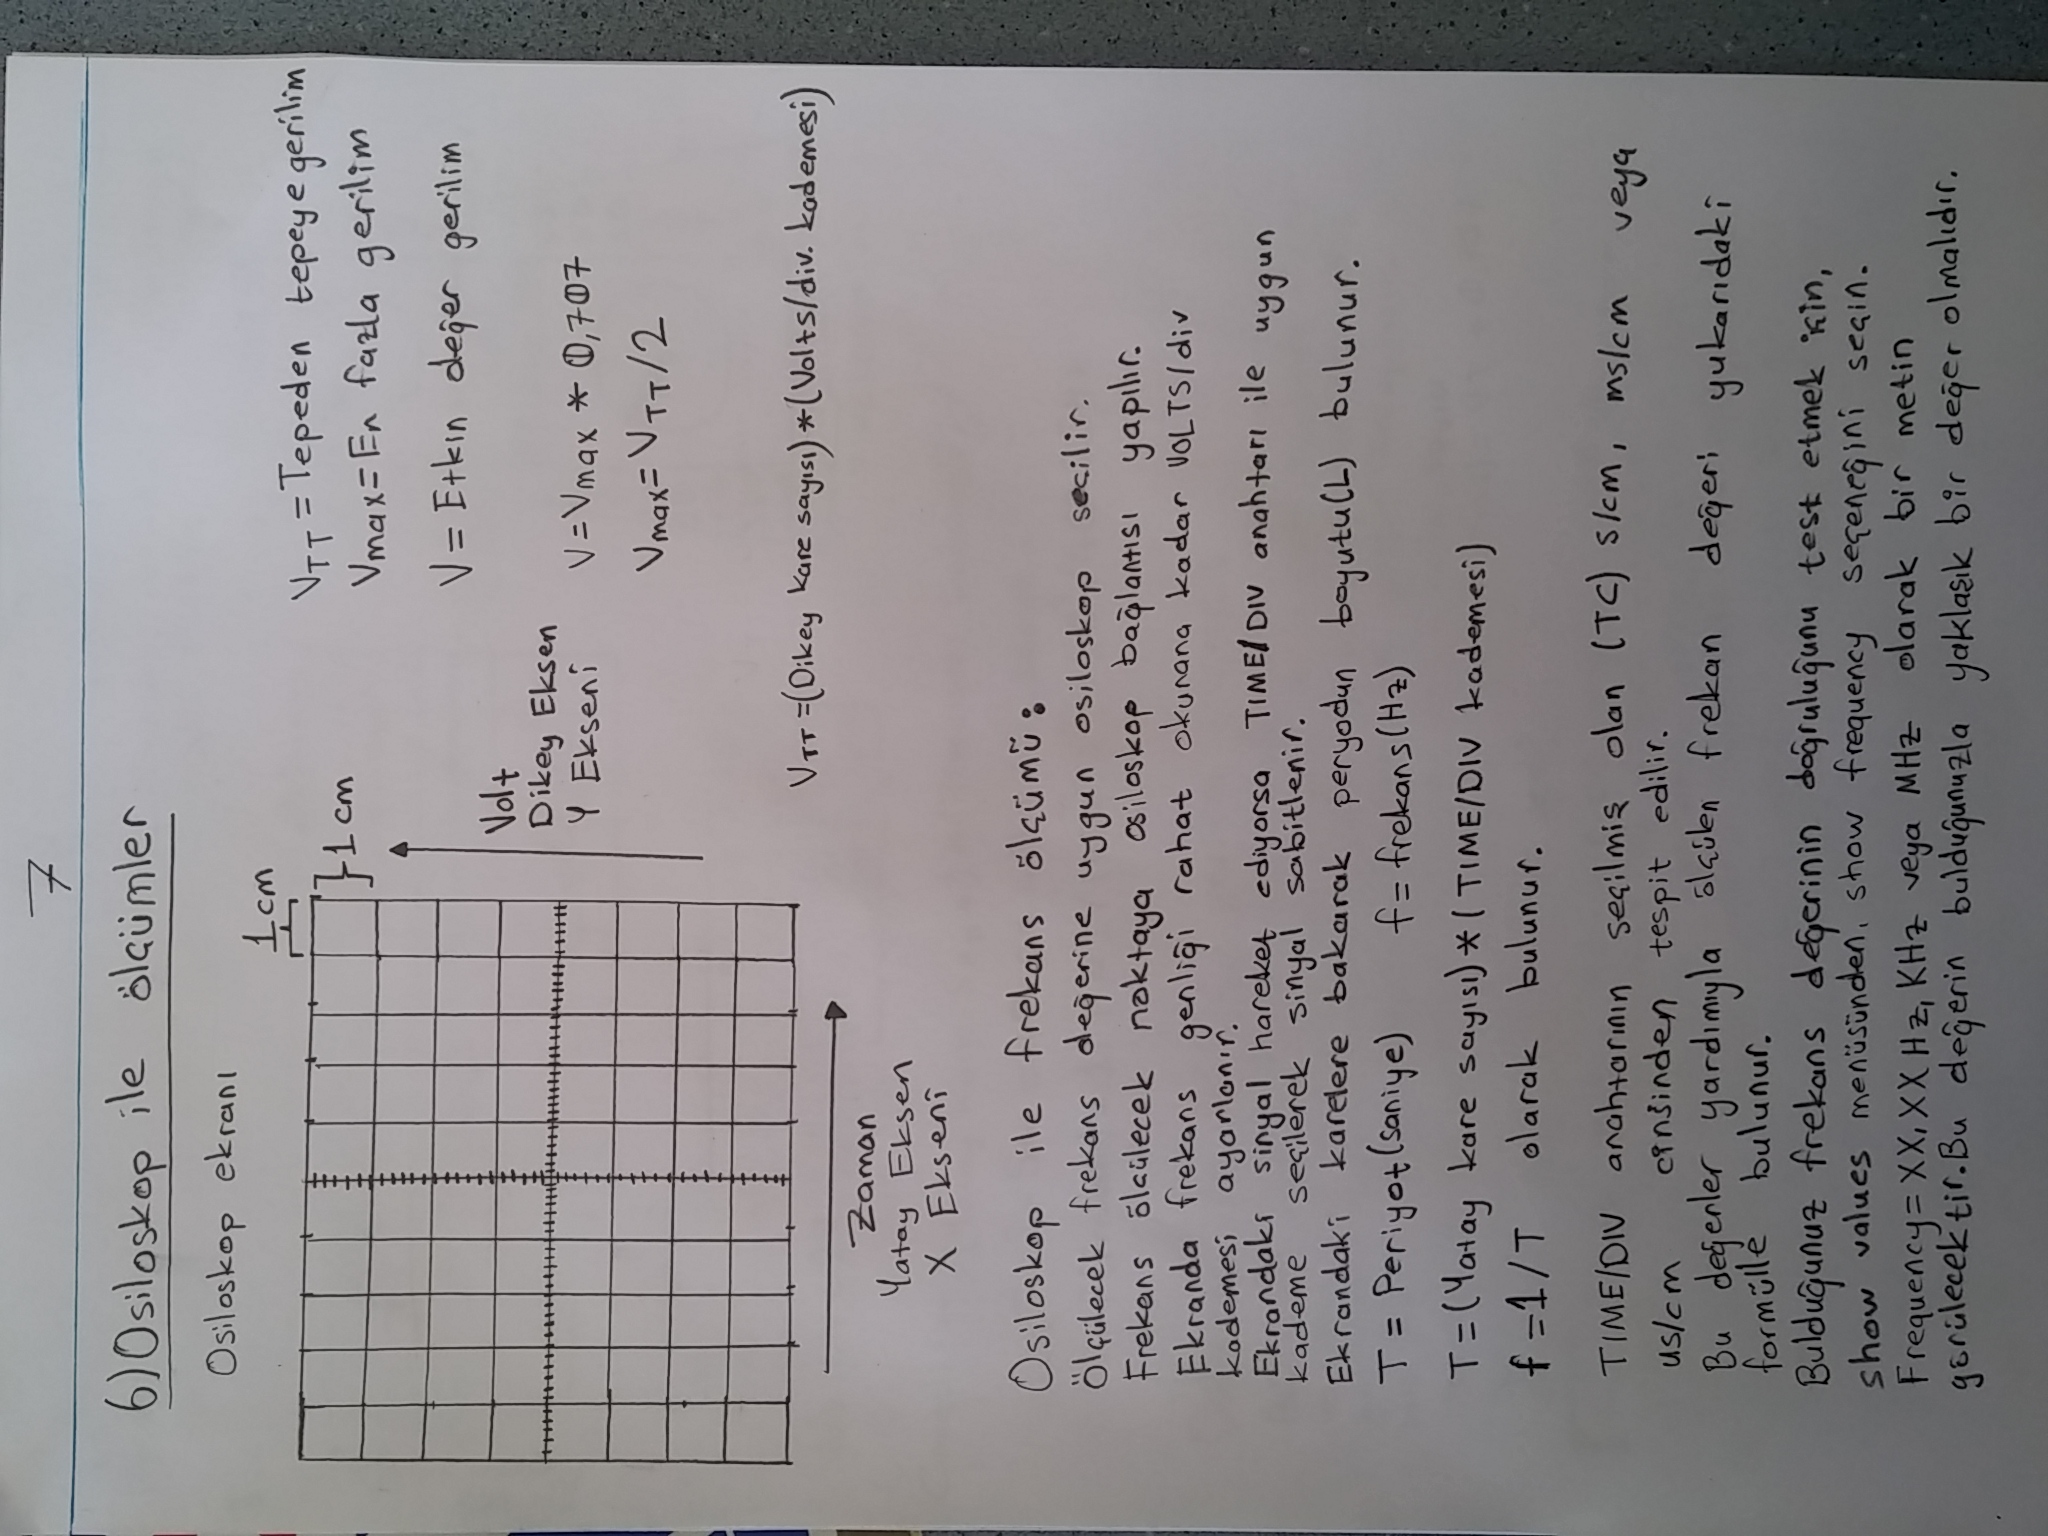 7
6)Osiloskop ile ölçümler
Osiloskop ekranı
1cm
}1 cm
VTT = Tepeden tepeye gerilim
Vmax= En fazla gerilim
V= Etkin değer gerilim
Volt
Dikey Eksen
Y Ekseni
V=Vmax * 0,707
Vmax= VTT/2
VTT =(Dikey kare sayısı)*(Volts/div. kademesi)
Zaman
Yatay Eksen
X Ekseni
Osiloskop ile frekans ölçümü:
Ölçülecek frekans değerine uygun osiloskop seçilir.
Frekans ölçülecek noktaya osiloskop bağlantısı yapılır.
Ekranda frekans genliği rahat okunana kadar VOLTS/div
kademesi ayarlanır.
Ekrandaki sinyal hareket ediyorsa TIME/DIV anahtarı ile uygun
kademe seçilerek sinyal sabitlenir.
Ekrandaki karelere bakarak peryodun boyutu(L) bulunur.
T = Periyot(saniye) f= frekans(Hz)
T=(Yatay kare sayısı)*( TIME/DIV kademesi)
f =1/T olarak bulunur.
TIME/DIV anahtarının seçilmiş olan (TC) s/cm, ms/cm veya
us/cm cinsinden tespit edilir.
Bu değerler yardımıyla ölçülen frekan değeri yukarıdaki
formülle bulunur.
Bulduğunuz frekans değerinin doğruluğunu test etmek için,
show values menüsünden, show frequency seçeneğini seçin.
Frequency= XX,XX Hz, KHz veya MHz olarak bir metin
görülecektir.Bu değerin bulduğunuzla yaklaşık bir değer olmalıdır.